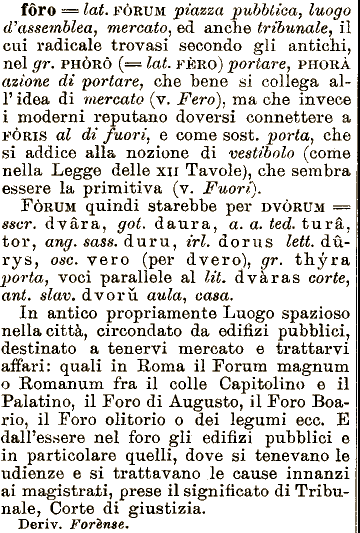 fôro = lat. FÒRUM piazza pubblica, luogo
d'assemblea, mercato, ed anche tribunale, il
cui radicale trovasi secondo gli antichi,
nel gr. PHÒRÔ (= lat. FÈRO) portare, PHORÀ
azione di portare, che bene si collega al-
l'idea di mercato (v. Fero), ma che invece
i moderni reputano doversi connettere a
FÒRIS al di fuori, e come sost. porta, che
si addice alla nozione di vestibolo (come
nella Legge delle XII Tavole), che sembra
essere la primitiva (v. Fuori).
FÒRUM quindi starebbe per DVÒRUM =
sscr. dvâra, got. daura, a. a. ted. turâ,
tor, ang. sass. duru, irl. dorus lett. dû-
rys, osc. vero (per dvero), gr. thýra
porta, voci parallele al lit. dvàras corte,
ant. slav. dvorŭ aula, casa.
In antico propriamente Luogo spazioso
nella città, circondato da edifizi pubblici,
destinato a tenervi mercato e trattarvi
affari: quali in Roma il Forum magnum
o Romanum fra il colle Capitolino e il
Palatino, il Foro di Augusto, il Foro Boa-
rio, il Foro olitorio o dei legumi ecc. E
dall'essere nel foro gli edifizi pubblici e
in particolare quelli, dove si tenevano le
udienze e si trattavano le cause innanzi
ai magistrati, prese il significato di Tribu-
nale, Corte di giustizia.
Deriv. Forènse.